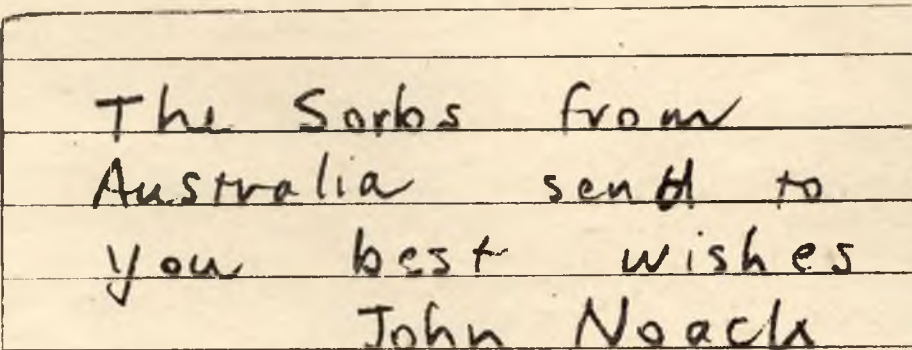 The Sorbs from
Australia send to
you best wishes
John Noack